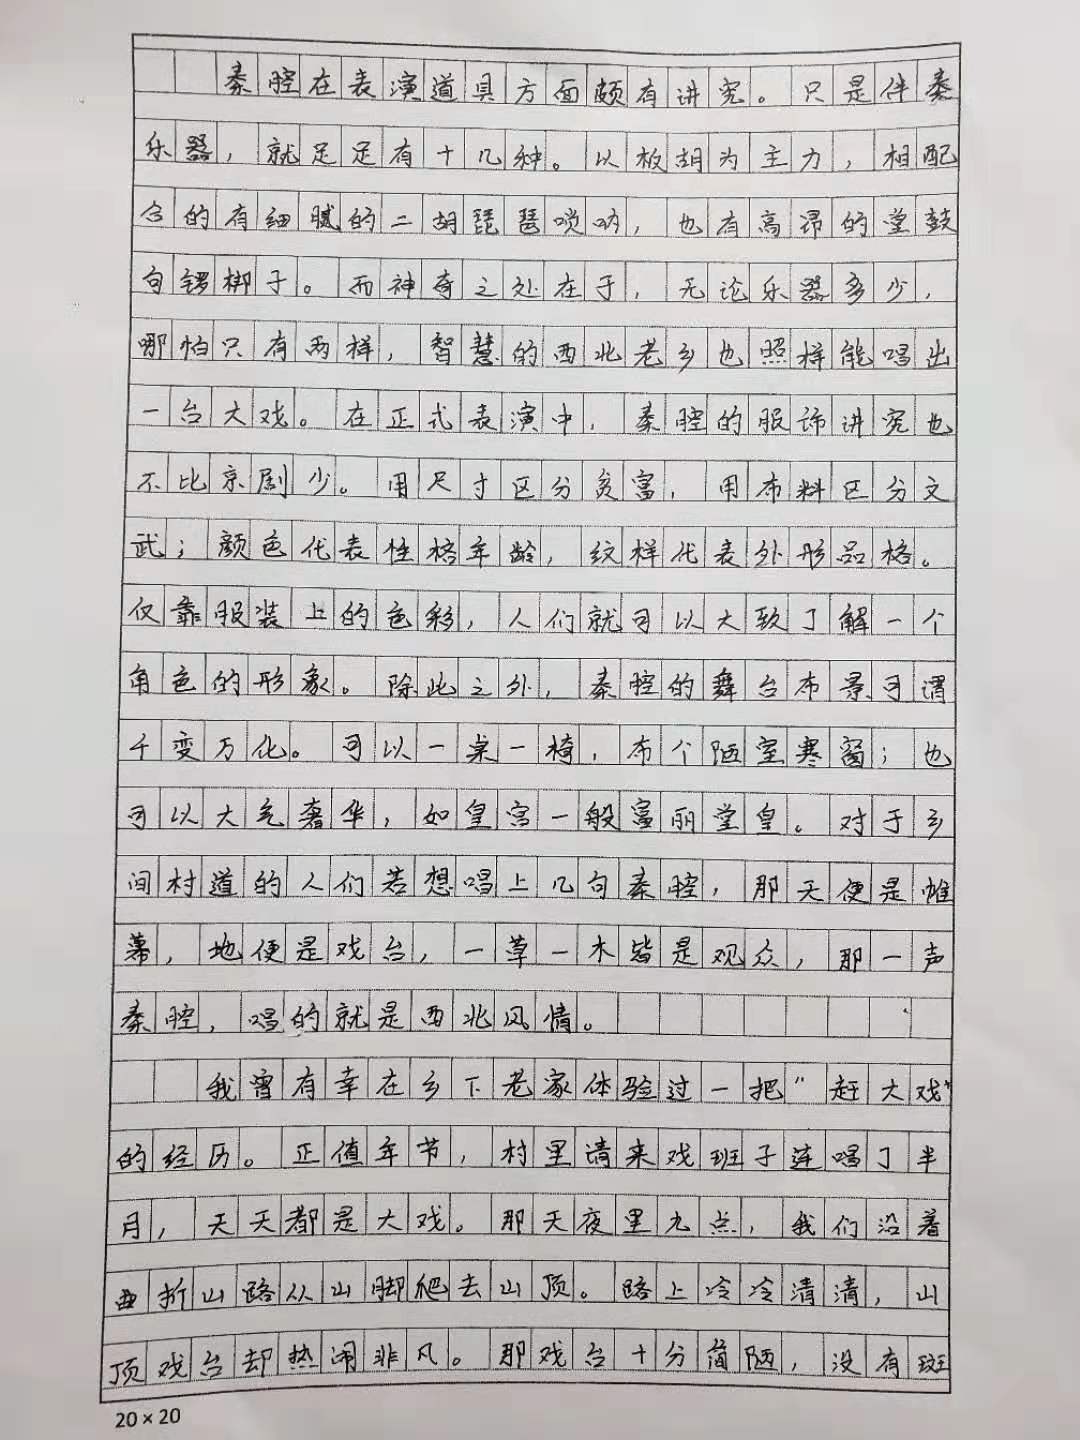 秦腔在表演道具方面颇有讲究。只是伴奏
乐器，就足足有十几种。以板胡为主力，相配
合的有细腻的二胡琵琶唢呐，也有高昂的堂鼓
勾锣梆子。而神奇之处在于，无论乐器多少，
哪怕只有两样，智慧的西北老乡也照样能唱出
一台大戏。在正式表演中，秦腔的服饰讲究也
不比京剧少。用尺寸区分贫富，用布料区分文
武；颜色代表性格年龄，纹样代表外形品格。
仅靠服装上的色彩，人们就可以大致了解一个
角色的形象。除此之外，秦腔的舞台布景可谓
千变万化。可以一桌一椅，布个陋室寒窗；也
可以大气奢华，如皇宫一般富丽堂皇。对于乡
间村道的人们若想唱上几句秦腔，那天便是帷
幕，地便是戏台，一草一木皆是观众，那一声
秦腔，唱的就是西北风情。
我曾有幸在乡下老家体验过一把“赶大戏”
的经历。正值年节，村里请来戏班子连唱了半
月，天天都是大戏。那天夜里九点，我们沿着
曲折山路从山脚爬去山顶。路上冷冷清清，山
顶戏台却热闹非凡。那戏台十分简陋，没有斑
20×20